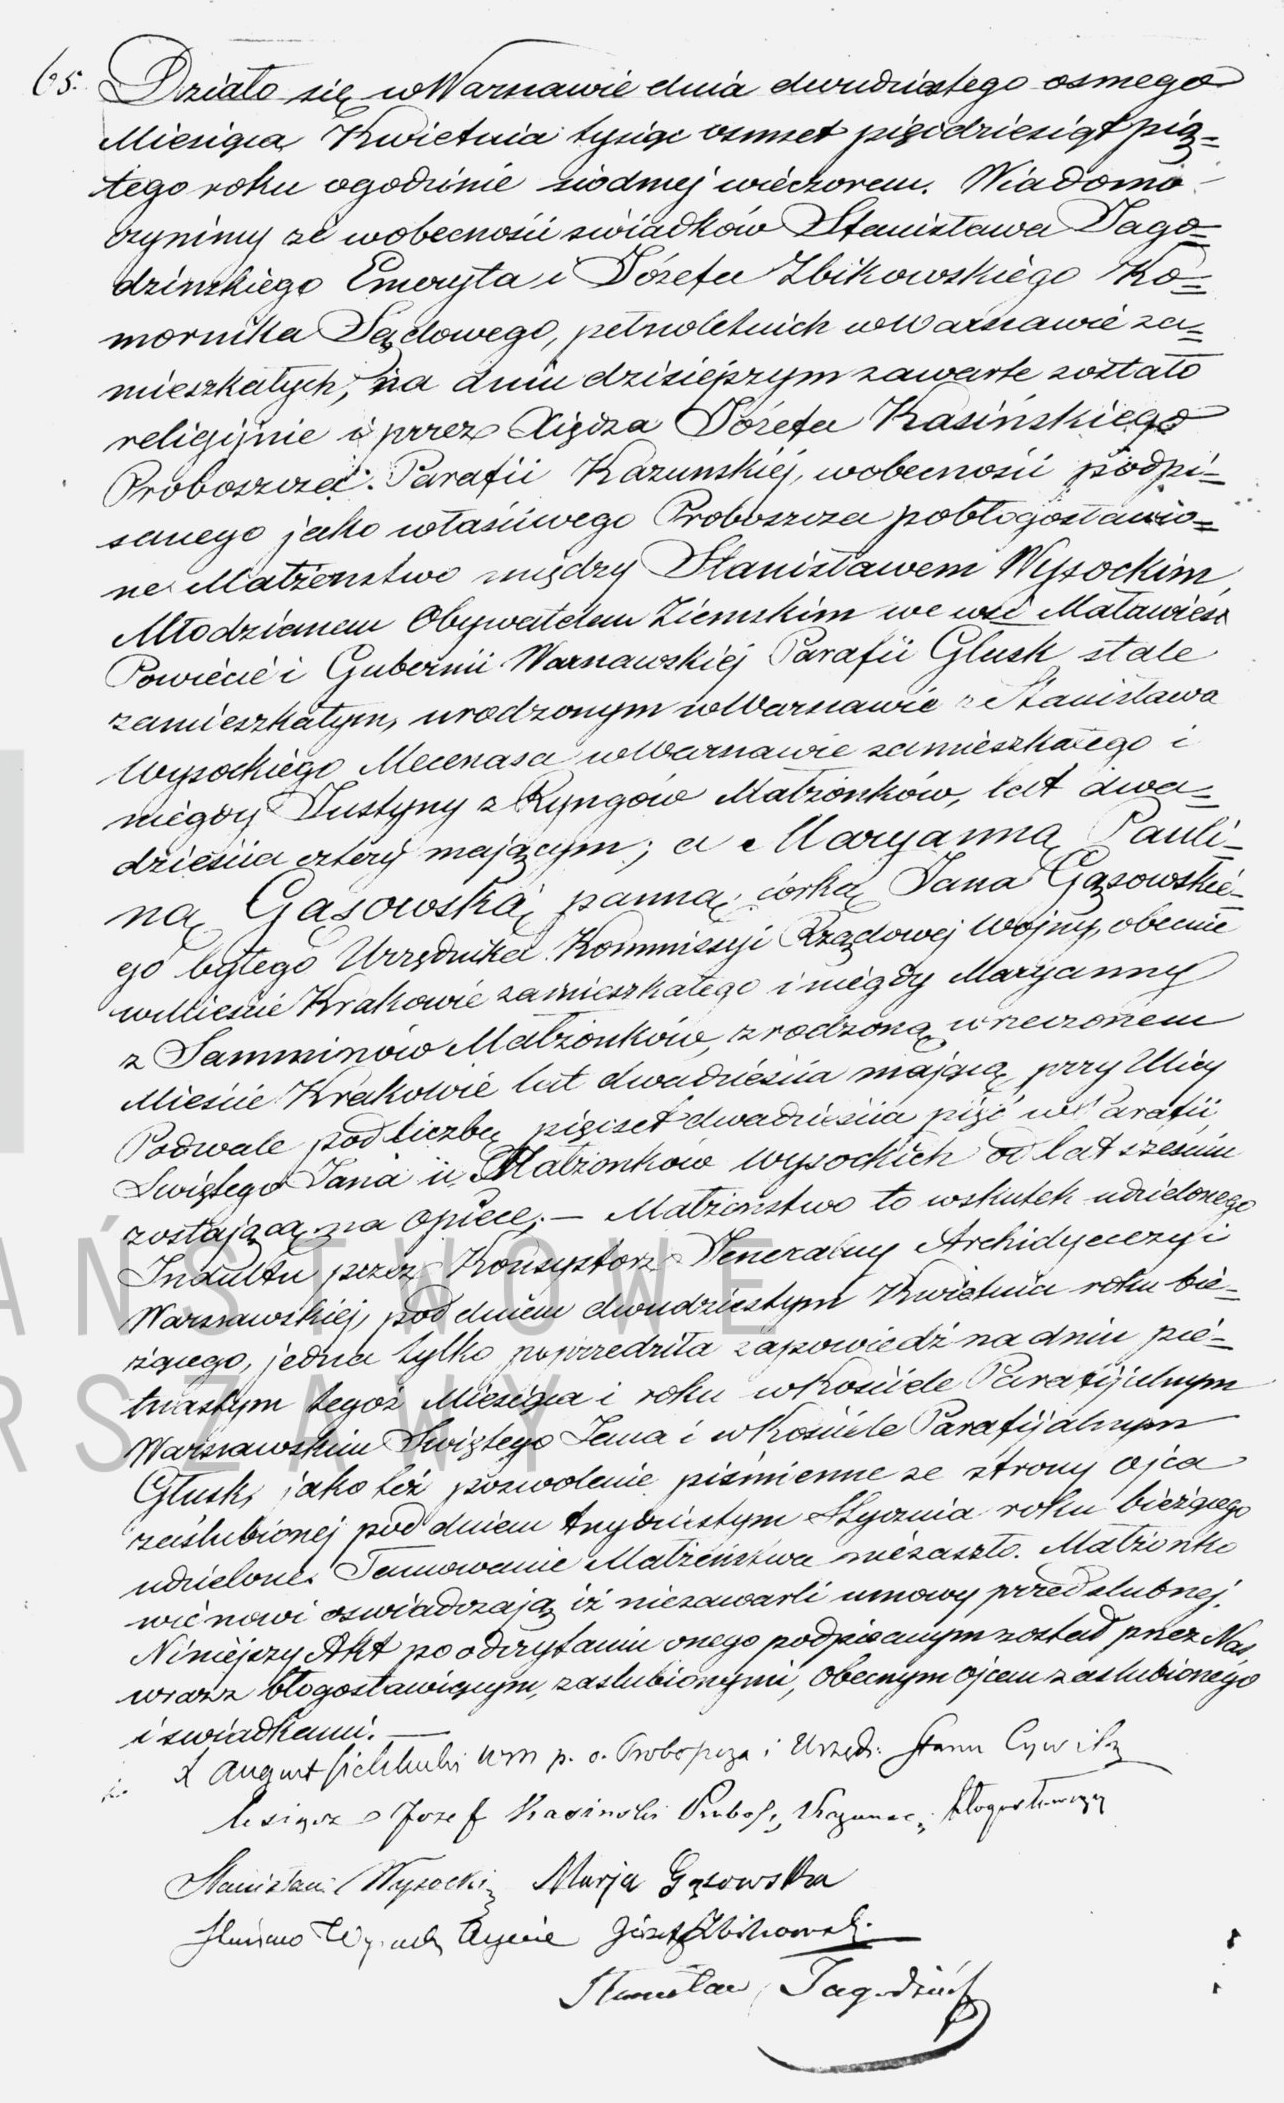 65. Działo się w Warszawie dnia dwudziestego osmego
Miesiąca Kwietnia tysiąc osmset pięćdziesiąt pią=
tego roku o godzinie siódmej wieczorem. Wiadomo
czynimy że w obecności świadków Stanisława Jago=
dzinskiego Emeryta i Józefa Zbikowskiego Ko=
mornika Sądowego, pełnoletnich w Warszawie za=
mieszkałych, na dniu dzisiejszym zawarte zostało
religijnie i przez Xiędza Józefa Kasińskiego
Proboszcza Parafii Kazunskiéj, w obecności podpi=
sanego jako właściwego Proboszcza pobłogosławio=
ne Małżenstwo między Stanisławem Wysockim,
Młodzianem Obywatelem Ziemskim we wsi Matawieś
Powiecie i Gubernii Warszawskiéj Parafii Glusk stale
zamieszkałym, urodzonym w Warszawie z Stanisława
Wysockiego Mecenasa w Warszawie zamieszkałego i
niegdy Justyny z Ryngów Małżonków, lat dwa=
dzieścia cztery mającym; a Maryanną Pauli=
ną Gąsowską panną, córką Jana Gąsowskie=
go byłego Urzędnika Kommissyi Rządowej Wojny, obecnie
w Mieście Krakowie zamieszkałego i niegdy Maryanny
z Samminów Małżonków, zrodzoną w rzeczonem
Mieście Krakowie lat dwadzieścia mającą, przy Ulicy
Podwale pod liczbą pięćset dwadzieścia pięć w Parafii
Swiętego Jana u Małżonków Wysockich od lat sześciu
zostającą na opiece; — Małżeństwo to wskutek udzielonego
Indultu przez Konsystorz Jeneralny Archidyecezyi
Warszawskiéj, pod dniem dwudziestym Kwietnia roku bie=
żącego, jedna tylko poprzedziła zapowiedź na dniu pię=
tnastym tegoż Miesiąca i roku w Kościele Parafijalnym
Warszawskim Swiętego Jana i w Kościele Parafijalnym
Glusk, jako też pozwolenie piśmienne ze strony ojca
zaślubionej pod dniem trzydziestym Stycznia roku bieżącego
udzielone. Tamowanie Małżeństwa niezaszło. Małżonko
wie nowi oswiadczają iż niezawarli umowy przedslubnej.
Niniejszy Akt po odczytaniu onego podpisanym został przez Nas
wraz z błogosławiącym, zaslubionymi, obecnym ojcem zaslubionego
i swiadkami. —
X August p. o. Proboszcza i Urzęd: Stanu Cywil:
Ksiądz Jozef Kasinski Probosz Kazunsc błogosławiący
Stanisław Wysocki Marja Gąsowska
Józef Zbikowski
Stanisław Jagodzińsk
PAŃSTWOWE
WARSZAWY